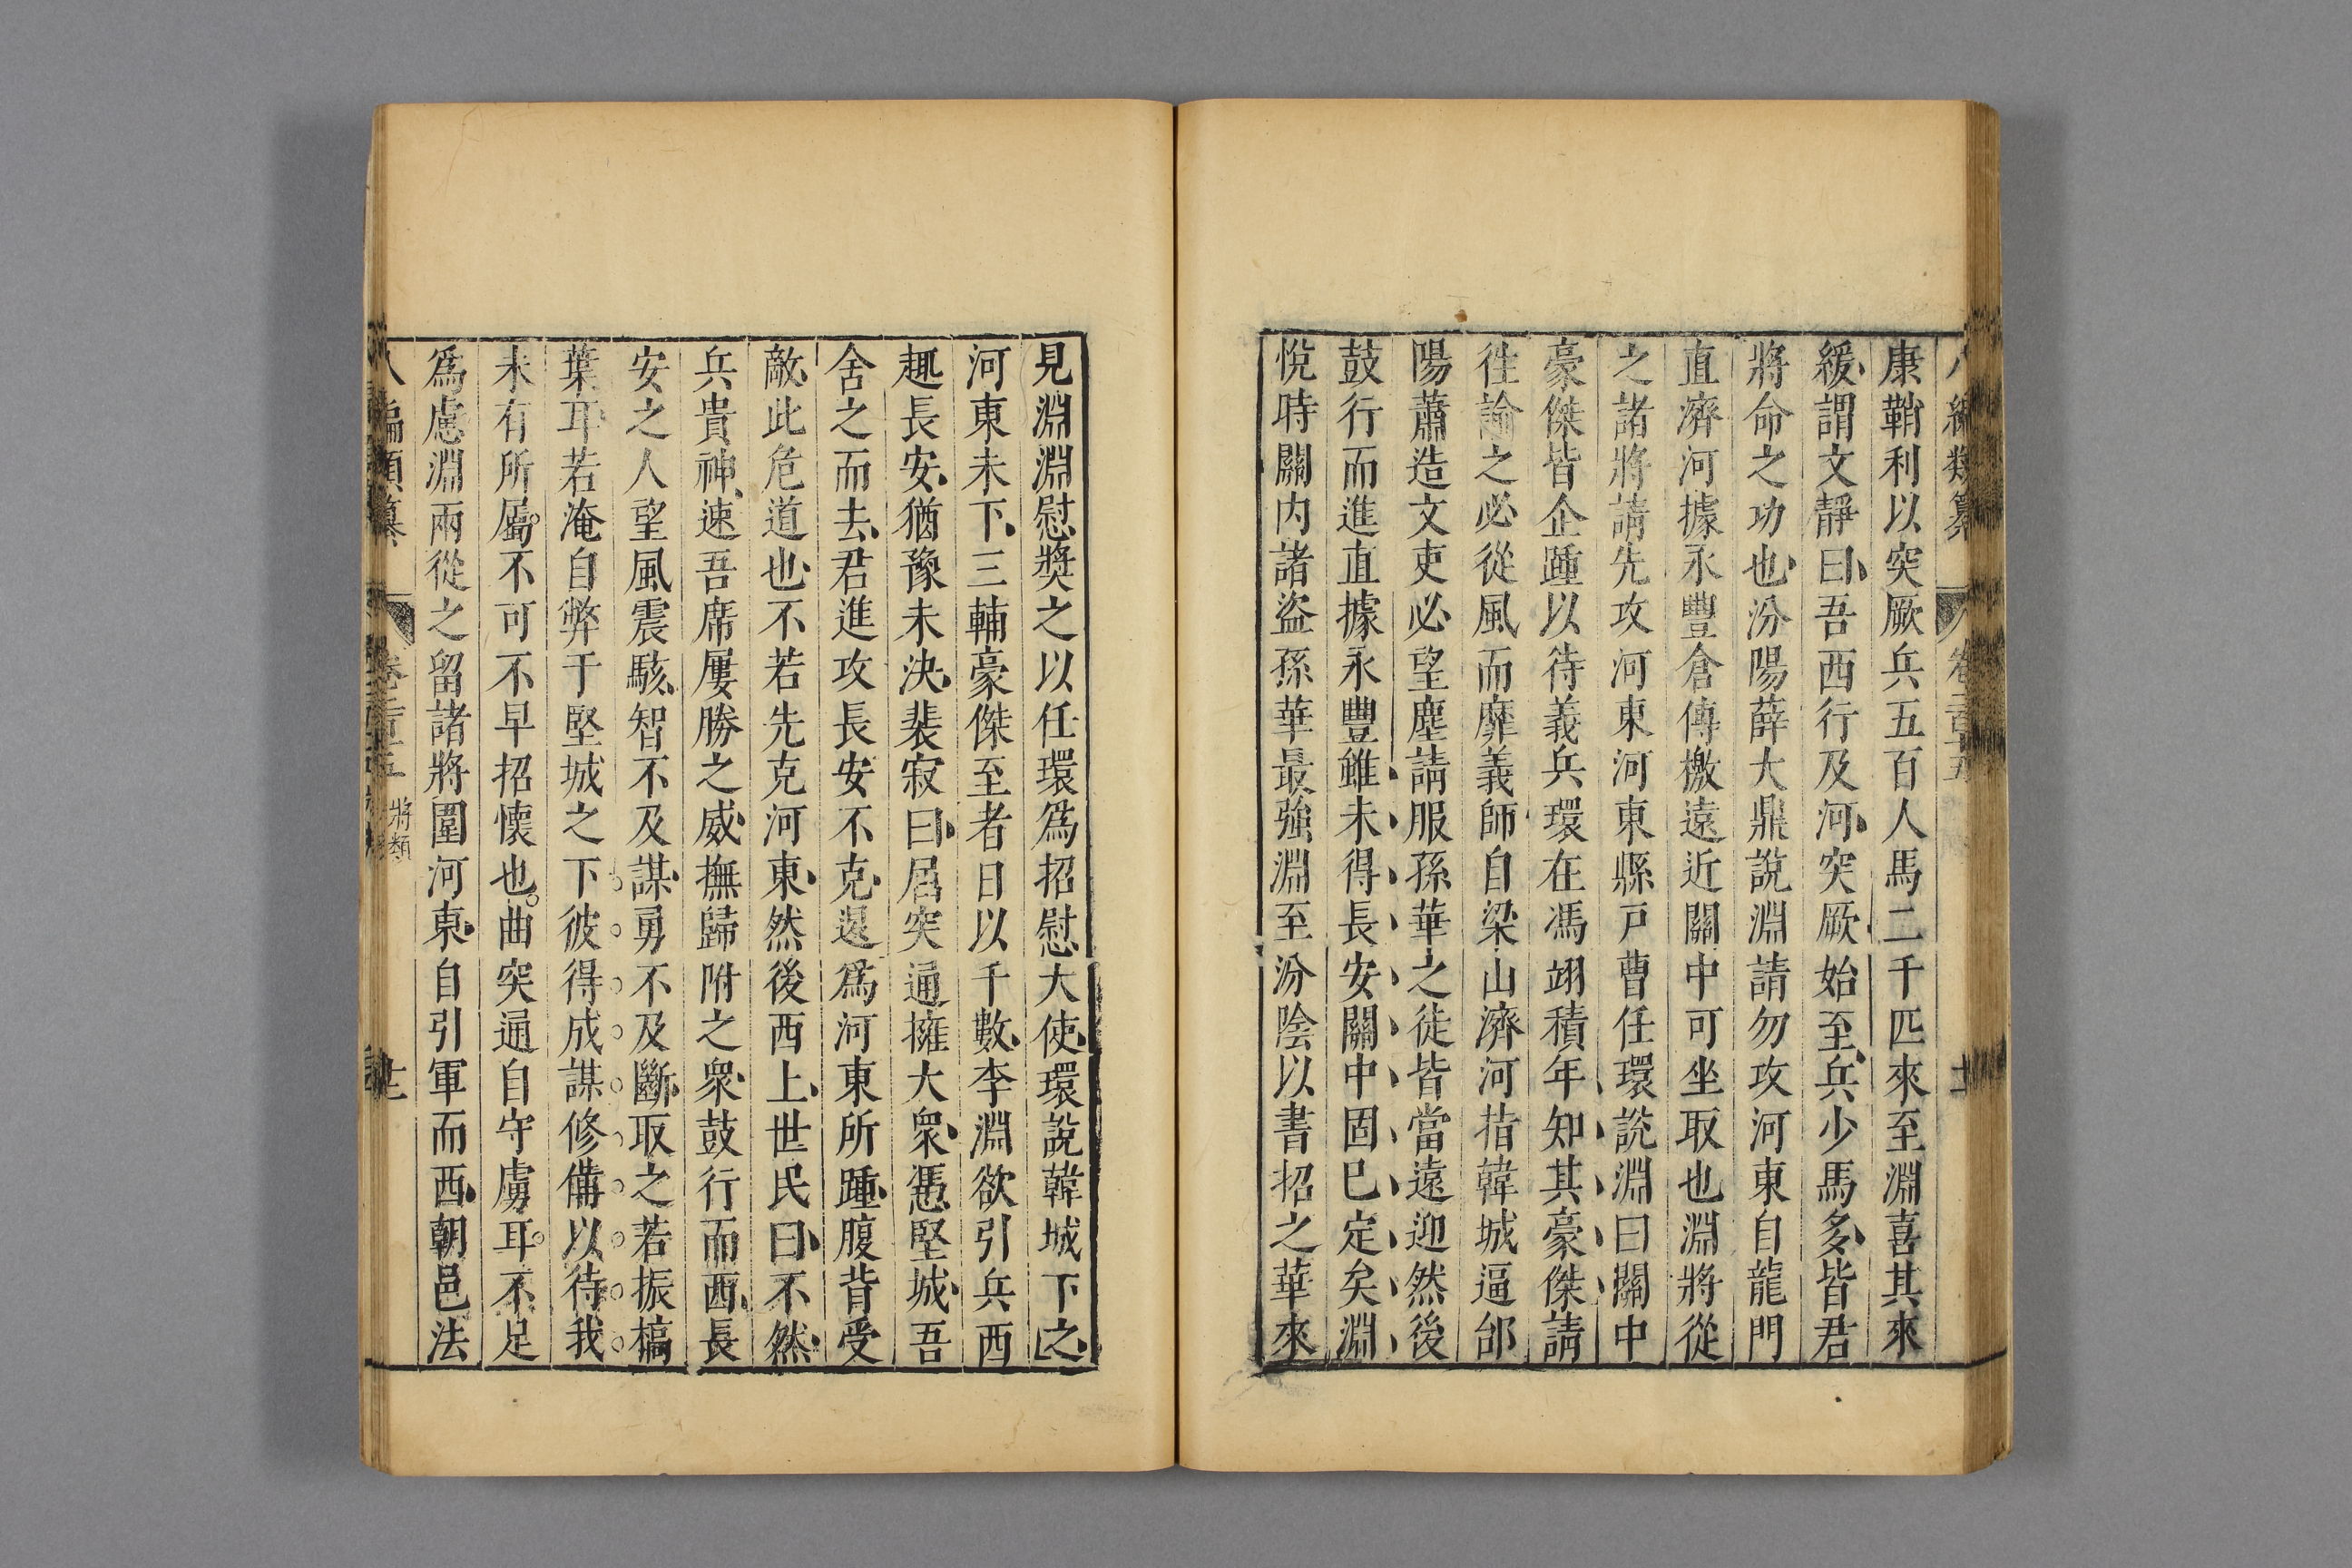 康鞘利以突厥兵五百人馬二千匹來至淵喜其來
緩謂文靜曰吾西行及河突厥始至兵少馬多皆君
將命之功也汾陽薛大鼎說淵請勿攻河東自龍門
直濟河據永豐倉傳檄遠近關中可坐取也淵將從
之諸將請先攻河東河東縣戸曹任環說淵曰關中
豪傑皆企踵以待義兵環在馮翊積年知其豪傑請
徃諭之必從風而靡義師自梁山濟河指韓城逼郃
陽蕭造文吏必望塵請服孫華之徒皆當遠迎然後
鼓行而進直據永豐雖未得長安關中固巳定矣淵
悅時關内諸盗孫華最強淵至汾陰以書招之華來
見淵淵慰奬之以任環爲招慰大使環說韓城下之
河東未下三輔豪傑至者日以千數李淵欲引兵西
趣長安猶豫未決裴寂曰屈突通擁大衆憑堅城吾
舍之而去君進攻長安不克退爲河東所踵腹背受
敵此危道也不若先克河東然後西上世民曰不然
兵貴神速吾席屢勝之威撫歸附之衆鼓行而西長
安之人望風震駭智不及謀勇不及斷取之若振槁
葉耳若淹自弊于堅城之下彼得成謀修備以待我
未有所屬不可不早招懷也曲突通自守虜耳不足
爲慮淵兩從之留諸將圍河東自引軍而西朝邑法
八編類纂 卷二百十五 將類